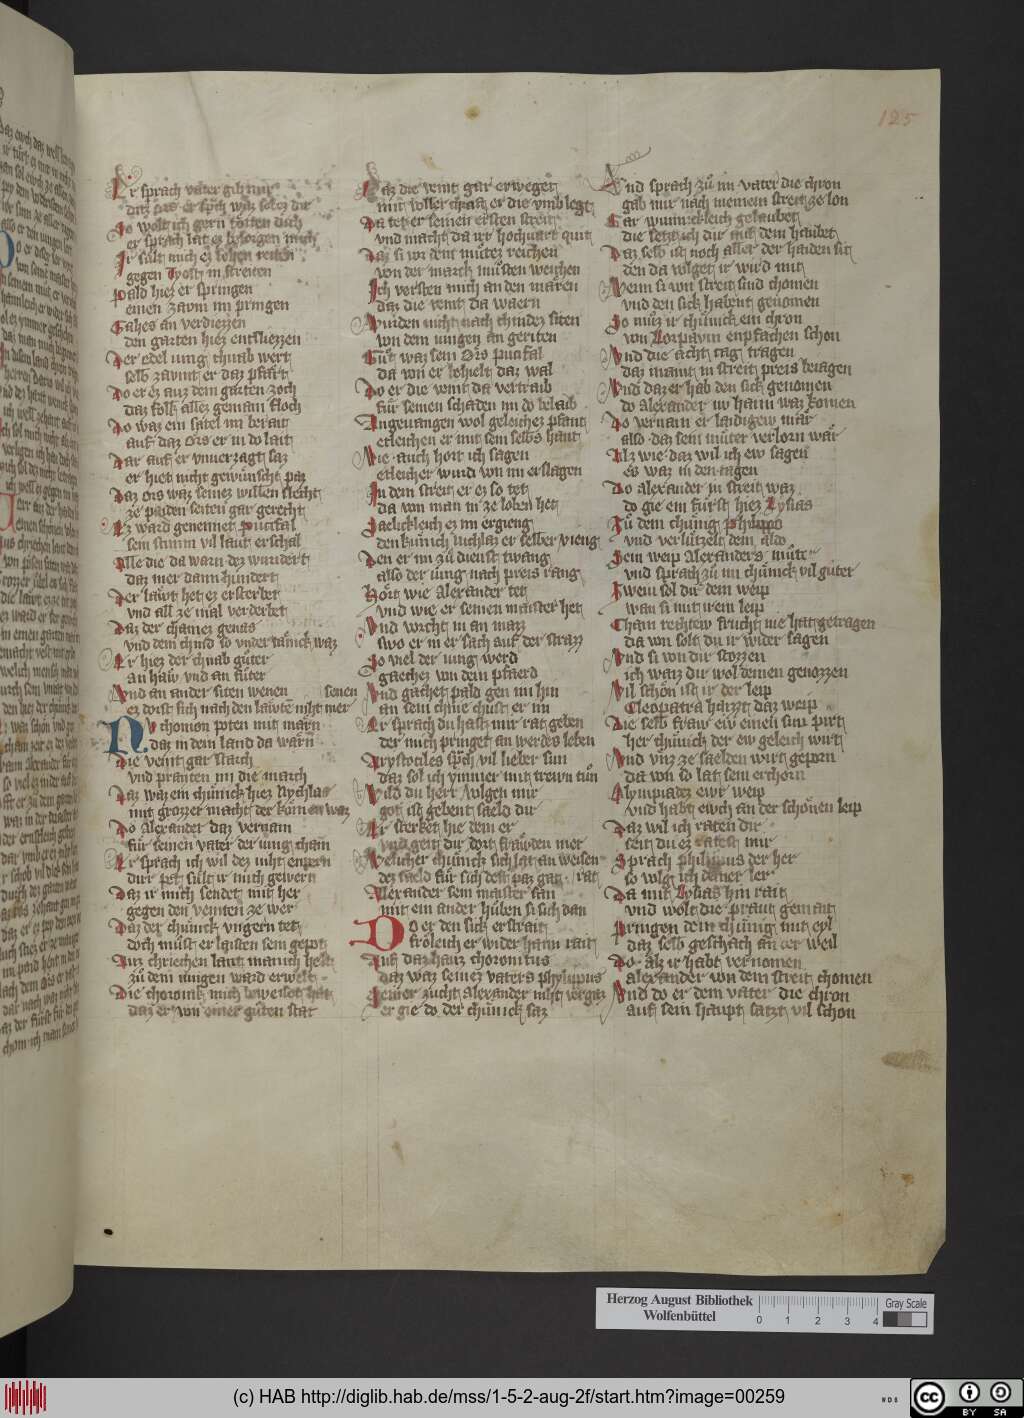 125
Er sprach vater gib mir
daz ors er sp̄ch waz soltz dir
Jo wolt ich gern toͤtten dich
er sprach lat ez besorgen mich
Jr sult mich ez lossen reiten
gegen Tyost in streiten
Pald hiez er springen
einen zaum im pringen
Gahes an verdiezzen
den garten hiez entsliezzen
Der edel iung chnab wert
selb zaumt er daz pfaͤrt
Do er ez auz dem garten zoch
daz folk allez gemain floch
Do waz ein satel im berait
auf daz Ors er in do lait
Dar auf er vnuerzagt saz
er hiet nicht gewunscht paz
Daz ors waz seinez willen slecht
ze paiden seiten gar gerecht
Ez ward genennet Puctfal
sein stimm vil laut erschal
Alle die da warn dez wundert
daz mer dann hundert
Der laͤwt het ez ersterbet
vnd all ze mal verderbet
Daz der chainez genas
vnd dem chind so vndertaͤnick waz
Er hiez der chnab guͤter
an haw vnd an fuͤter
Vnd an ander siten wenen
ez dorst sich nach den laͤwte niht mer senen
Nv chomen poten mit maͤrn
daz in dem land da waͤrn
Die veint gar starch
vnd pranten im die march
Daz waz ein chuͤnick hiez Nychlas
mit grozzer macht der komen waz
Do Alexander daz vernam
fuͤr seinen vater der iung cham
Er sprach ich wil dez niht enpern
durr pet suͤlt ir mich gewern
Daz ir mich sendet mit her
gegen den veinten ze wer
Daz der chuͤnick vngern tet
doch muͤst er laisten sein gepot
Auz chriechen lant manich helt
zuͤ dem iungen ward erwelt
Die chronik mich beweiset hat
daz er von einer guͤten stat
Daz die veint gar erweget
mit voller chraft er die vmb legt
Da tet er seinen ersten streit
vnd macht da ir hochuart quit
Daz si vor dem muͤtez reichen
von der march muͤsten weichen
Ich versten mich an den maͤren
daz die veint da waern
Wurden nicht nach chindez siten
von dem iungen an geriten
Guͤt waz sein Ors pucifal
da von er behielt daz wal
Do er die veint da vertraib
fuͤr seinen schaden im do belaib
Angeuangen wol geleichez pfant
etleichen er mit sein selbs hant
Wie auch hort ich sagen
etleicher wurd von im erslagen
In dem streit er ez so tet
da von man in ze loben het
Saelichleich ez im ergieng
den kunich nichlaz er selber vieng
Den er im zuͤ dienst twang
also der iung nach preis rang
Hort wie Alexander tet
vnd wie er seinen maister het
Vnd vorcht in an mazz
swo er in er sach auf der strazz
So viel der iung werd
gaechez von dem pfaerd
Vnd gachet pald gen im hin
an sein chnie chust er in
Er sprach du hast mir rat geben
der mich pringet an werdes leben
Arystotiles sp̄ch vil lieber sun
daz sol ich ymmer mit trewn tuͤn
Wild du herr volgen mir
got ist gebent saeld dir
Er sterket hie dein er
vnd geit dir dort fraͤwden mer
Welicher chuͤnick sich lat an weisen
dez saeld fuͤr sich dest paz gat rat
Alexander sein maister san
mit ein ander huͤben si sich dan
Do er den sick erstrait
froͤleich er wider haim rait
Auf daz hauz choronitus
daz waz seinez vaters phylippus
Seiner zucht Alexander niht vergaz
er gie do der chuͤnick saz
Vnd sprach zuͤ im vater die chron
gab mir nach meinem streit ze lon
Gar wunnecleich gelaubet
die setzt ich dir auf dein haubet
Daz selb ist noch aller der haiden sit
den da volget ir wird mit
Wenn si von streit sind chomen
vnd den sick habent genomen
So muͤz ir chuͤnick ein chron
von Lorpaum enpfachen schon
Vnd die acht tag tragen
daz mant in streit preis beiagen
Vnd daz er hab den sick genomen
do alexander nv haim waz komen
Do vernam er laidigew maͤr
also daz sein muͤter verlorn waͤr
Alz wie daz wil ich ew sagen
es waz in den tagen
Do Alexander in streit waz
do gie ein fuͤrst hiez Lysias
Fuͤr dem chuͤnig Philippo
vnd verluͤtzelt dem also
Sein weip Alexanders muͤter
vnd sprach zuͤ im chuͤnick vil guͤter
Zwein sol dir dein weip
wan si mit irem leip
Chain rechtew frucht nie hat getragen
da von solt du ir wider sagen
Vnd si von dir stozzen
ich waiz dir wol deinen genozzen
Vil schoͤn ist ir der leip
Cleopatra haizzt daz weip
Die selb fraw ew einen sun pirt
her chuͤnick der ew geleich wirt
Vnd vnz ze saelden wirt geporn
da von so lat sein erchorn
Olympiadez ewr weip
vnd habt ewch an der schoͤnen leip
Daz wil ich raten dir
seit du ez ratest mir
Sprach philippus der her
so volg ich deiner ler
Da mit Lysias hin rait
vnd wolt die praut gemait
Pringen dem chuͤnig mit eyl
daz selb geschach an der weil
Do alz ir habt vernomen
alexander von dem streit chomen
Vnd do er dem vater die chron
auf sein haupt satzt vil schon
Herzog August Bibliothek
Wolfenbüttel
0 1 2 3 4
Gray Scale
(c) HAB http://diglib.hab.de/mss/1-5-2-aug-2f/start.htm?image=00259
WDB
cc BY SA